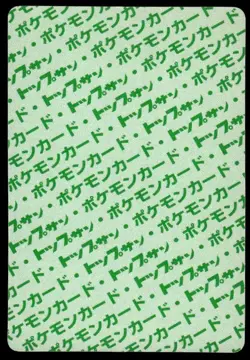 ポケモン
トップサン・ポケモンカード
ポケモンカード・トップサン
トップサン・ポケモンカード
ポケモンカード・トップサン
トップサン・ポケモンカード
ポケモンカード・トップサン
トップサン・ポケモンカード
ポケモンカード・トップサン
トップサン・ポケモンカード
ポケモンカード・トップサン
トップサン・ポケモンカード
ポケモンカード・トップサン
ポケモンカード